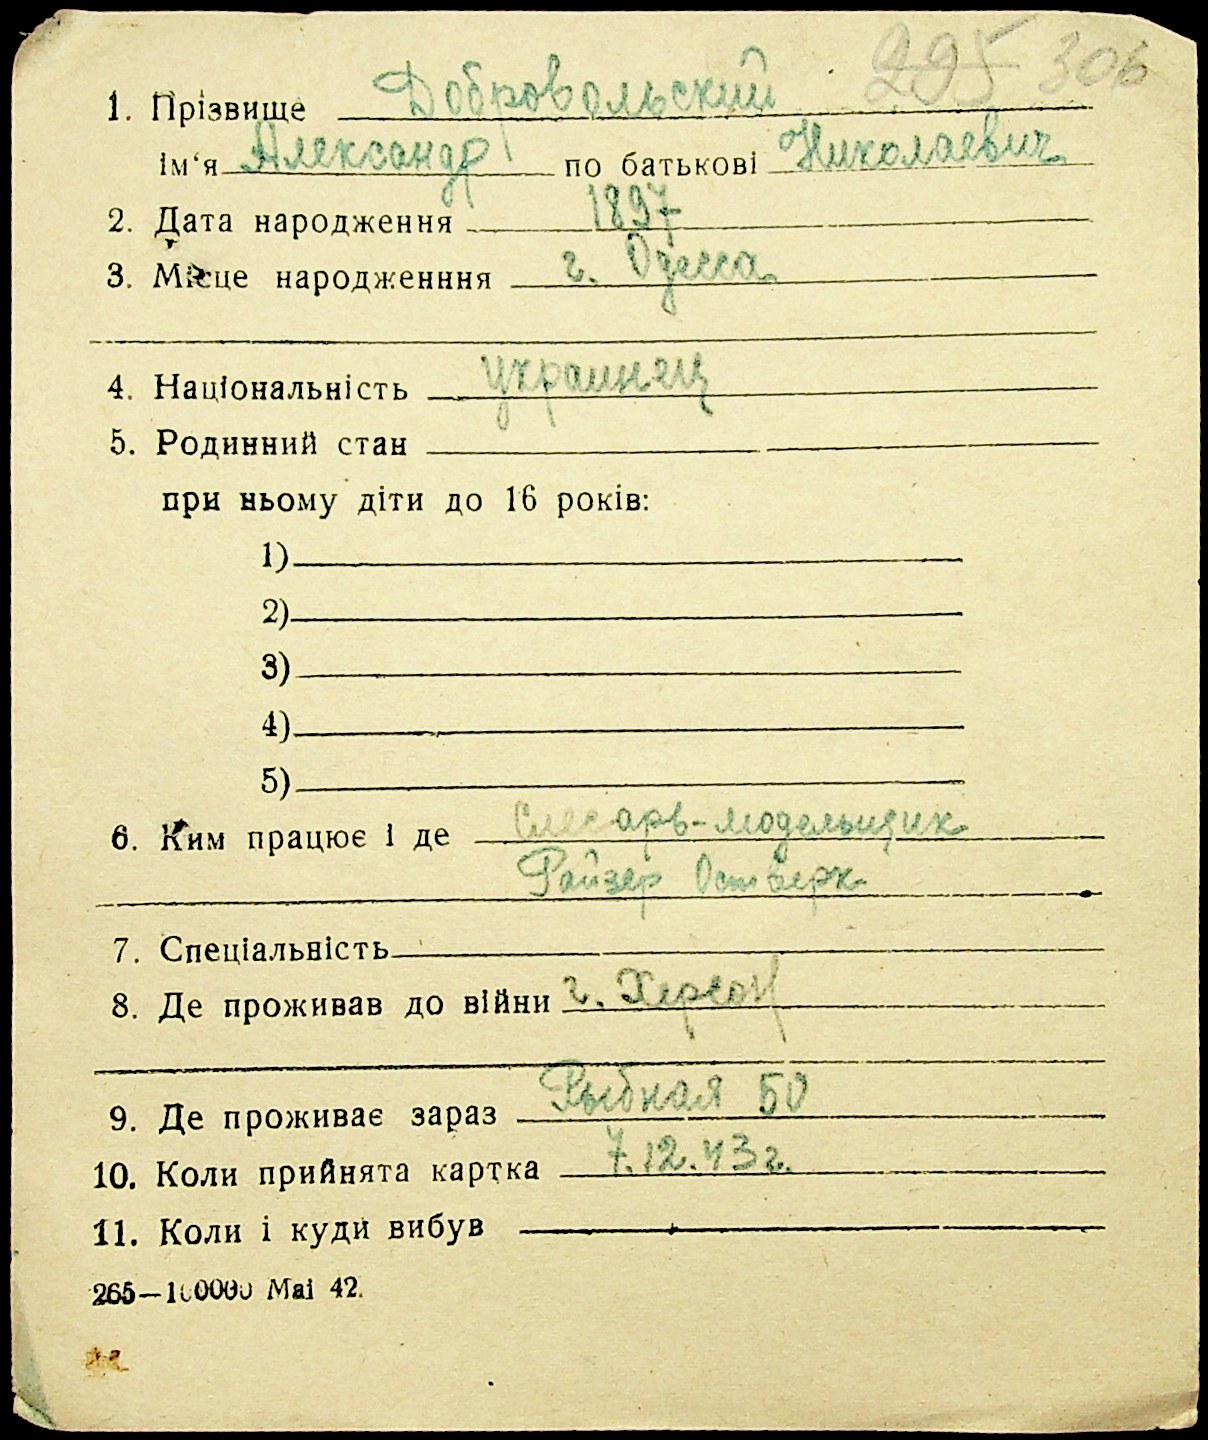 295 306
1. Прізвище Добровольский
ім'я Александр по батькові Николаевич
2. Дата народження 1897
3. Місце народженння г. Одесса
4. Національність украинец
5. Родинний стан
при ньому діти до 16 років:
1)
2)
3)
4)
5)
6. Ким працює і де Слесарь-модельщик
Райзер Остверк
7. Спеціальність
8. Де проживав до війни г. Херсон
9. Де проживає зараз Рыбная 50
10. Коли прийнята картка 7.12.43 г.
11. Коли і куди вибув
265—100000 Mai 42.